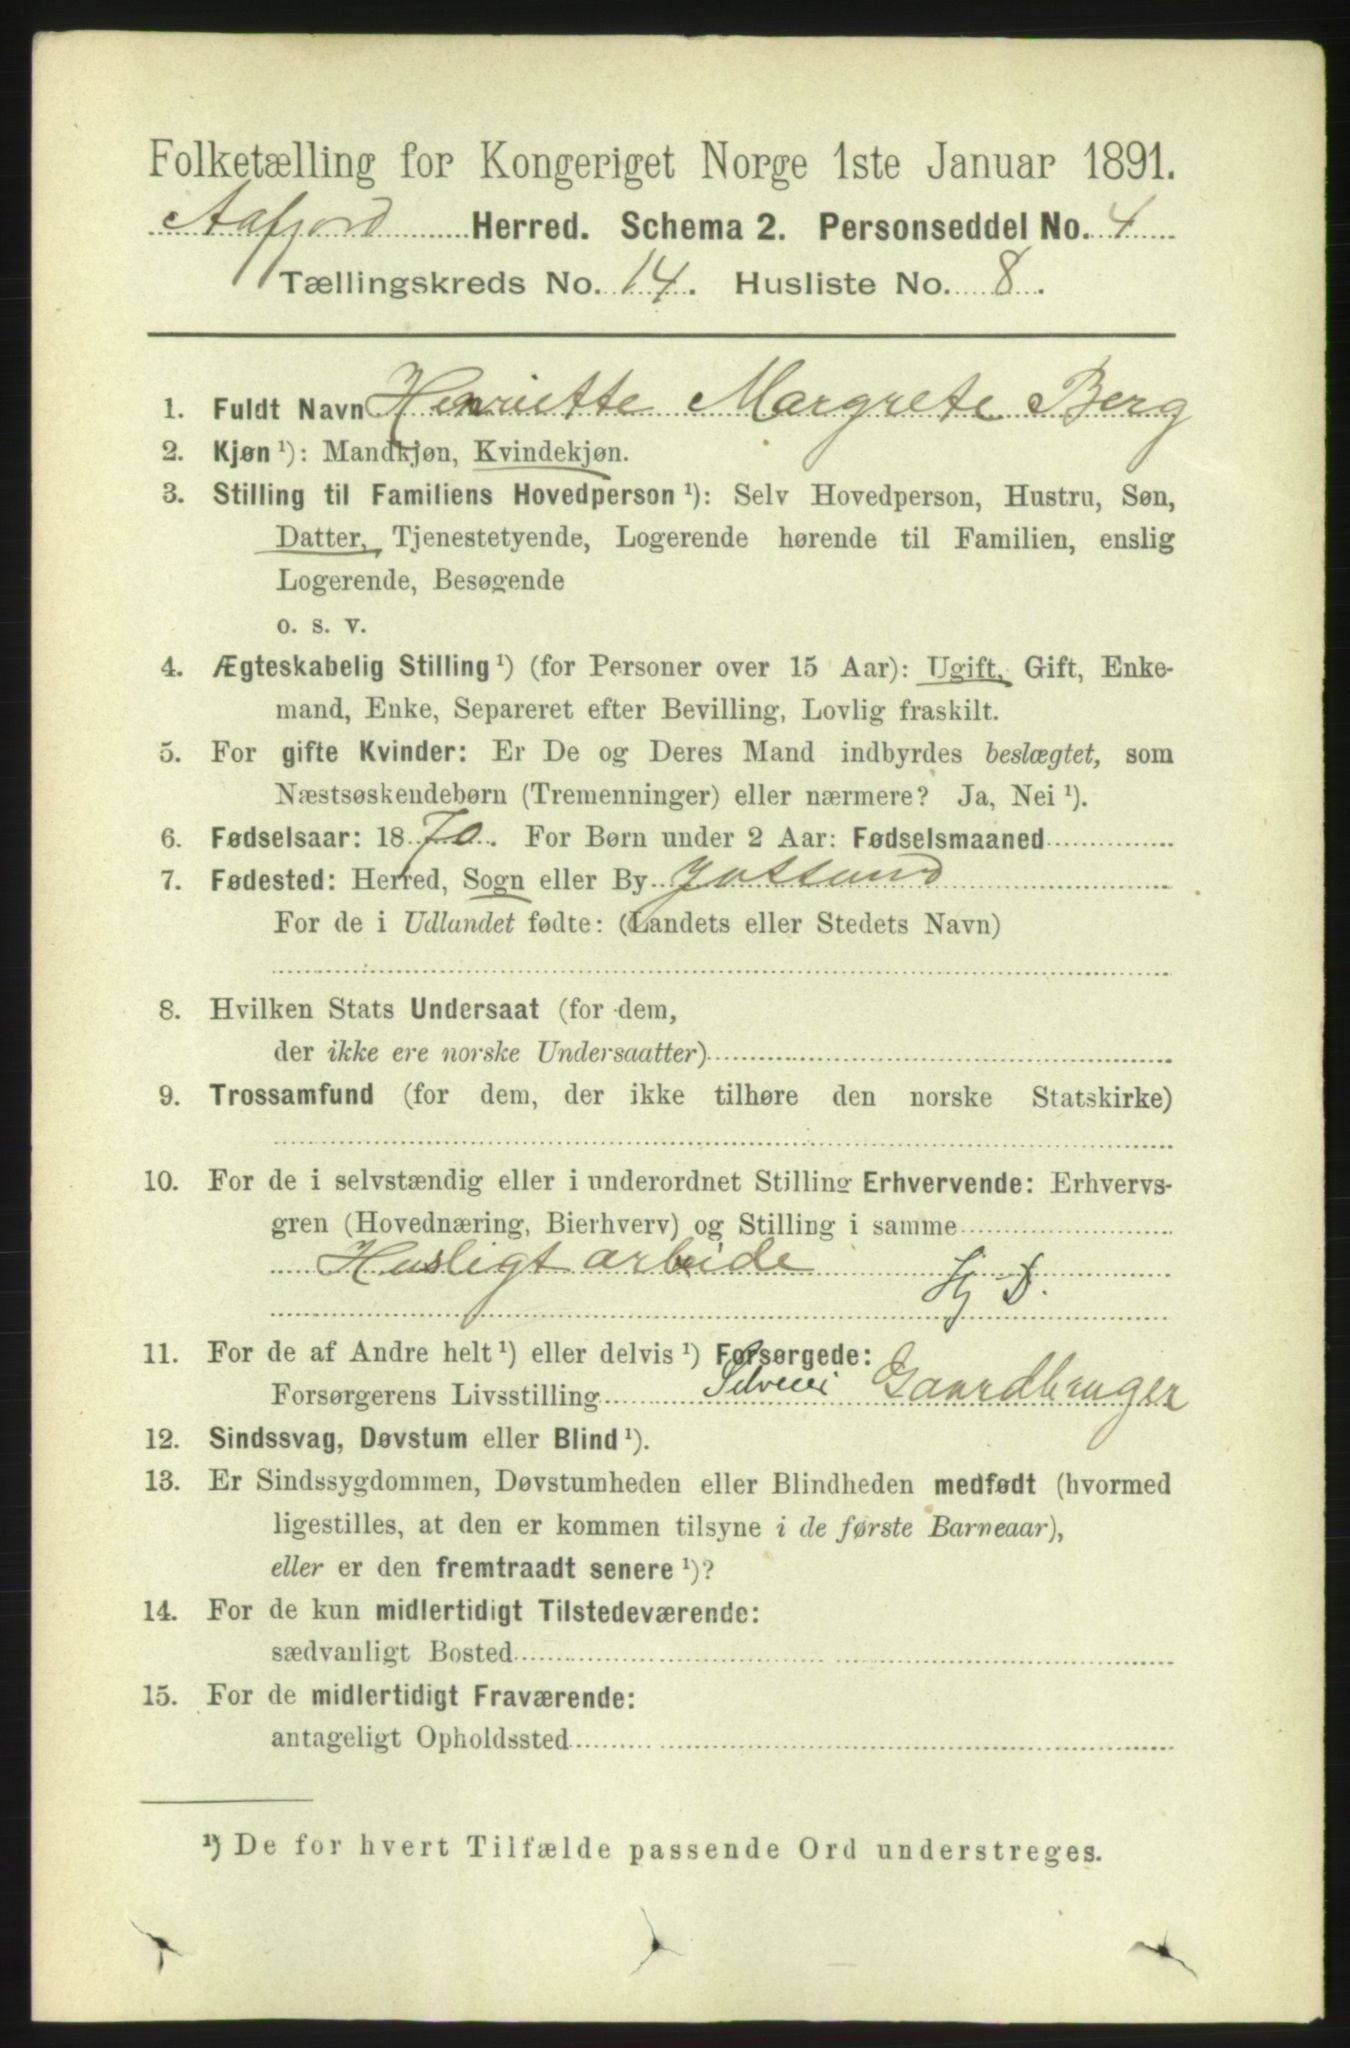 Folketælling for Kongeriget Norge 1ste Januar 1891.
Aafjord Herred. Schema 2. Personseddel No. 4
Tællingskreds No. 14. Husliste No. 8.
1. Fuldt Navn Henriette Margrete Berg
2. Kjøn ¹): Mandkjøn, Kvindekjøn.
3. Stilling til Familiens Hovedperson ¹): Selv Hovedperson, Hustru, Søn,
Datter, Tjenestetyende, Logerende hørende til Familien, enslig
Logerende, Besøgende
o. s. v.
4. Ægteskabelig Stilling ¹) (for Personer over 15 Aar): Ugift, Gift, Enke-
mand, Enke, Separeret efter Bevilling, Lovlig fraskilt.
5. For gifte Kvinder: Er De og Deres Mand indbyrdes beslægtet, som
Næstsøskendebørn (Tremenninger) eller nærmere? Ja, Nei ¹).
6. Fødselsaar: 1870. For Børn under 2 Aar: Fødselsmaaned
7. Fødested: Herred, Sogn eller By Jøssund
For de i Udlandet fødte: (Landets eller Stedets Navn)
8. Hvilken Stats Undersaat (for dem,
der ikke ere norske Undersaatter)
9. Trossamfund (for dem, der ikke tilhøre den norske Statskirke)
10. For de i selvstændig eller i underordnet Stilling Erhvervende: Erhvervs-
gren (Hovednæring, Bierhverv) og Stilling i samme
Husligt arbeide
Hj D.
11. For de af Andre helt ¹) eller delvis ¹) Forsørgede:
Forsørgerens Livsstilling Selveier Gaardbruger
12. Sindssvag, Døvstum eller Blind ¹).
13. Er Sindssygdommen, Døvstumheden eller Blindheden medfødt (hvormed
ligestilles, at den er kommen tilsyne i de første Barneaar),
eller er den fremtraadt senere ¹)?
14. For de kun midlertidigt Tilstedeværende:
sædvanligt Bosted
15. For de midlertidigt Fraværende:
antageligt Opholdssted
¹) De for hvert Tilfælde passende Ord understreges.